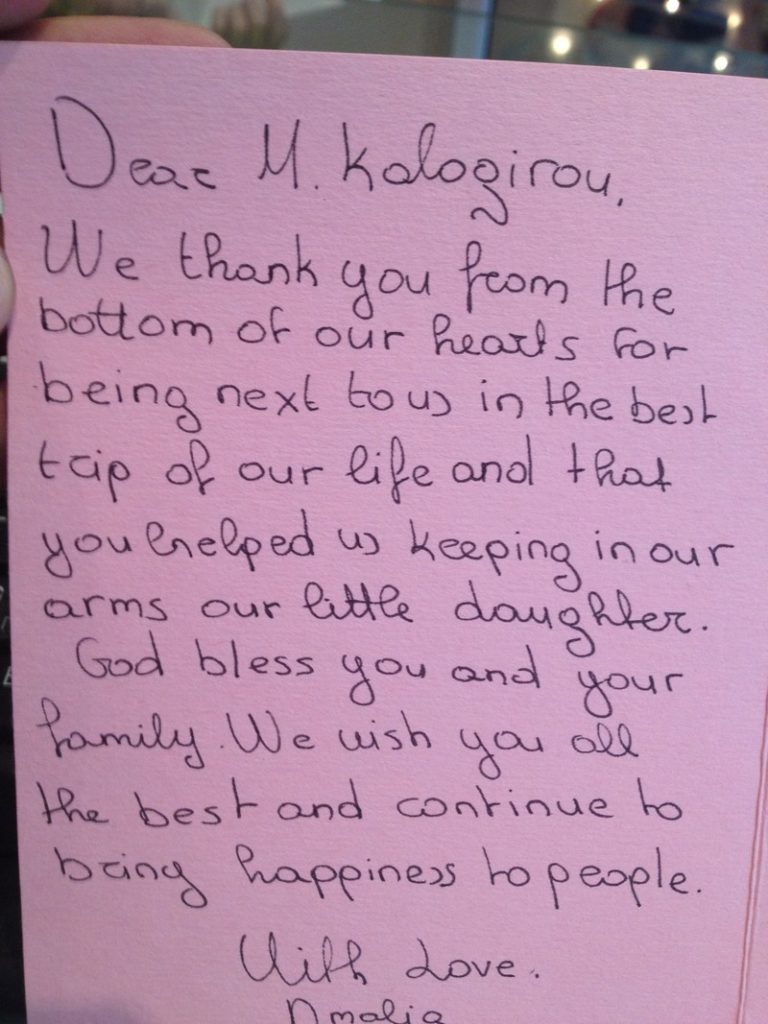 Dear M. Kalogirou,
We thank you from the
bottom of our hearts for
being next to us in the best
trip of our life and that
you helped us keeping in our
arms our little daughter.
God bless you and your
family. We wish you all
the best and continue to
bring happiness to people.
With Love.
Amalia